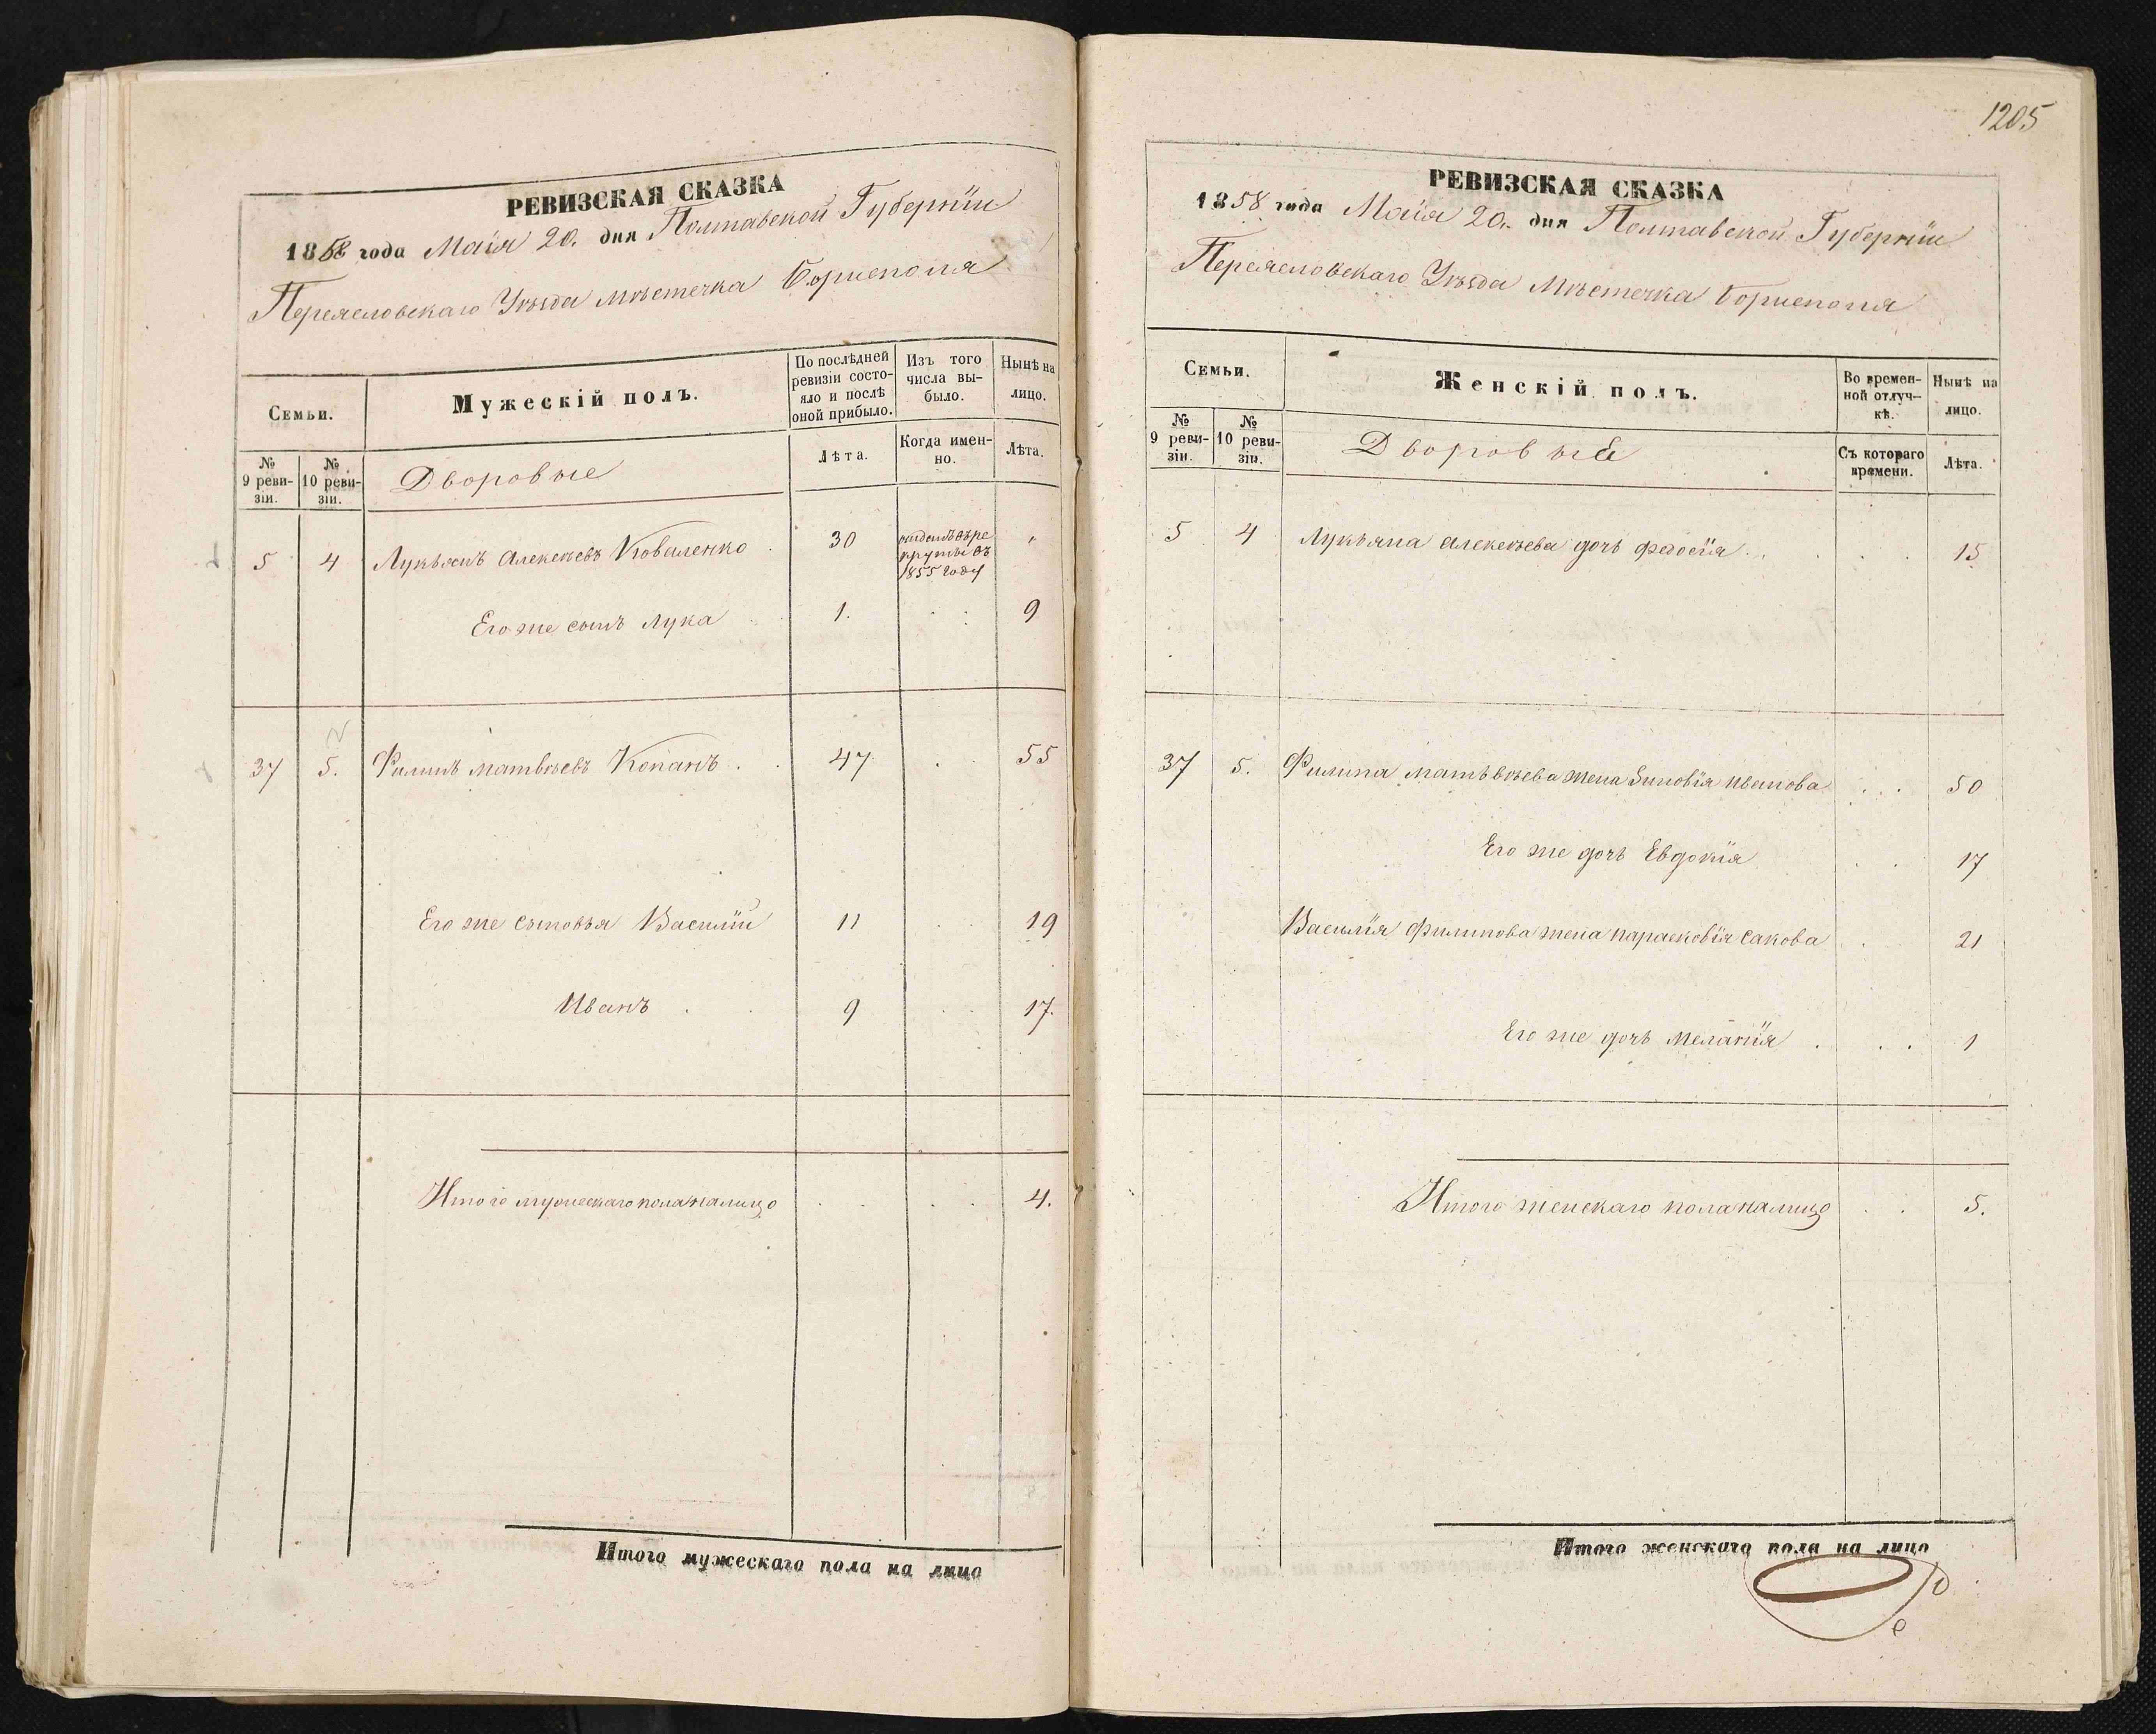 РЕВИЗСКАЯ СКАЗКА
1858 года Маія 20. дня Полтавской Губерніи
Переясловскаго Уѣзда мѣстечка Борисполя
Семьи.
Мужескій полъ.
По послѣдней ревизіи состояло и послѣ оной прибыло.
Изъ того числа выбыло.
Нынѣ на лицо.
№ 9 ревизіи.
№ 10 ревизіи.
Дворовые
Лѣта.
Когда именно.
Лѣта.
5 4 Лукьянъ Алексѣевъ Коваленко 30 отданъ въ рекруты въ 1855 году "
Его же сынъ Лука 1. 9
37 5. Филипъ Матвѣевъ Копанъ 47 55
Его же сыновья Василій 11 19
Иванъ 9 17.
Итого мужескаго пола налицо 4.
Итого мужескаго пола на лицо
1205
РЕВИЗСКАЯ СКАЗКА
1858 года Маія 20. дня Полтавской Губерніи
Переясловскаго Уѣзда Мѣстечка Борисполя
Семьи.
Женскій полъ.
Во временной отлучкѣ.
Нынѣ на лицо.
№ 9 ревизіи.
№ 10 ревизіи.
Дворовые
Съ котораго времени.
Лѣта.
5 4 Лукьяна Алексѣева дочь Федосія 15
37 5. Филипа Матьвѣева жена Зиновія Иванова 50
Его же дочь Евдокія 17
Василія Филипова жена Парасковія Сакова 21
Его же дочь Меланія 1
Итого женскаго пола налицо 5.
Итого женскаго пола на лицо